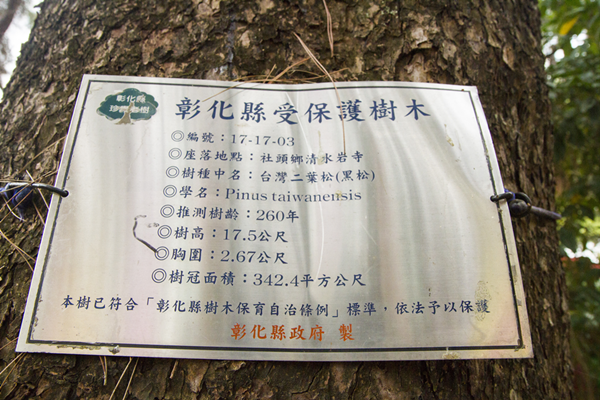 彰化縣
珍貴老樹
彰化縣受保護樹木
◎編號：17-17-03
◎座落地點：社頭鄉清水岩寺
◎樹種中名：台灣二葉松(黑松)
◎學名：Pinus taiwanensis
◎推測樹齡：260年
◎樹高：17.5公尺
◎胸圍：2.67公尺
◎樹冠面積：342.4平方公尺
本樹已符合「彰化縣樹木保育自治條例」標準，依法予以保護
彰化縣政府 製